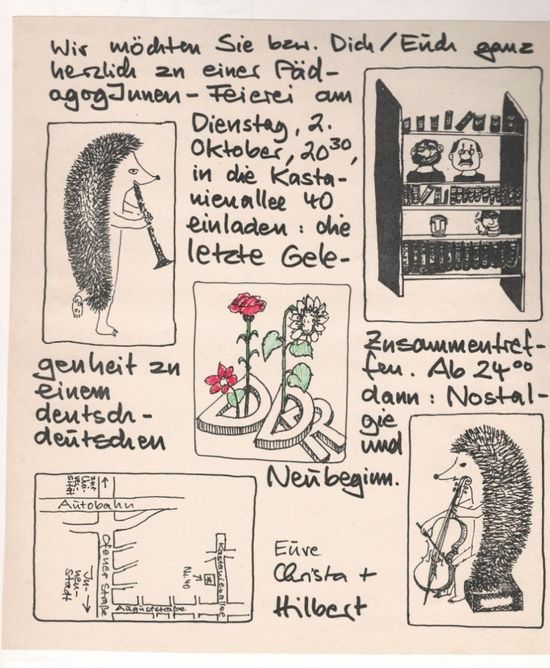 Wir möchten Sie bzw. Dich/Euch ganz
herzlich zu einer Päd-
agogInnen-Feierei am
Dienstag, 2.
Oktober, 20³⁰,
in die Kasta-
nienallee 40
einladen: die
letzte Gele-
genheit zu
einem
deutsch-
deutschen
Zusammentref-
fen. Ab 24⁰⁰
dann: Nostal-
gie
und
Neubeginn.
DDR
Autobahn
Ofener Straße
In-
nen-
stadt
Auguststraße
Kastanienallee
Nr. 40
Eure
Christa +
Hilbert